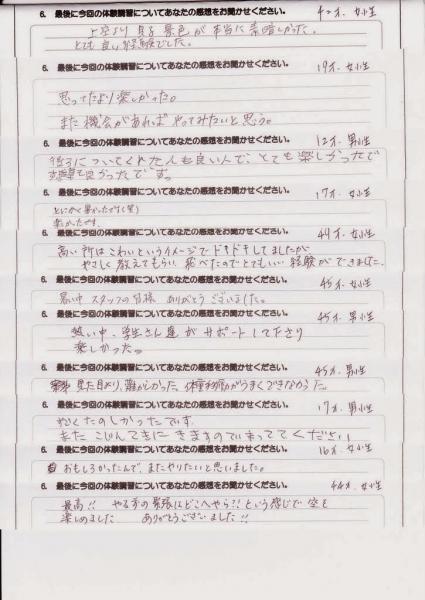 6. 最後に今回の体験講習についてあなたの感想をお聞かせください。 42才、女性
上空より見る景色が本当に素晴しかった。
とても良い経験でした。
6. 最後に今回の体験講習についてあなたの感想をお聞かせください。 19才、女性
思ってたより楽しかった。
また機会があればやってみたいと思う。
6. 最後に今回の体験講習についてあなたの感想をお聞かせください。 12才、男性
についてくれた人も良い人で、とても楽しかったで
良かったです。
6. 最後に今回の体験講習についてあなたの感想をお聞かせください。 17才、女性
とにかく暑かったです(笑)
楽かったです。
6. 最後に今回の体験講習についてあなたの感想をお聞かせください。 49才、女性
高い所はこわいというイメージでドキドキしてましたが
やさしく教えてもらい飛べたのでとてもいい経験ができました。
6. 最後に今回の体験講習についてあなたの感想をお聞かせください。 45才、女性
暑い中 スタッフの皆様 ありがとうございました。
6. 最後に今回の体験講習についてあなたの感想をお聞かせください。 45才、男性
熱い中、学生さん達がサポートして下さり
楽しかった。
6. 最後に今回の体験講習についてあなたの感想をお聞かせください。 45才、男性
見た目より、難かしかった、体重移動がうまくできなかった。
6. 最後に今回の体験講習についてあなたの感想をお聞かせください。 17才、男性
たのしかったです。
またこじんてきにきますのでまっててください
6. 最後に今回の体験講習についてあなたの感想をお聞かせください。 16才、女性
おもしろかったんで、またやりたいと思いました。
6. 最後に今回の体験講習についてあなたの感想をお聞かせください。 44才、女性
最高!! やる前の緊張はどこへやら?!という感じで空を
楽しめました ありがとうございました!!